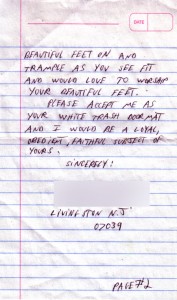 DATE
BEAUTIFUL FEET ON AND
TRAMPLE AS YOU SEE FIT
AND WOULD LOVE TO WORSHIP
YOUR BEAUTIFUL FEET.
PLEASE ACCEPT ME AS
YOUR WHITE TRASH DOORMAT
AND I WOULD BE A LOYAL,
OBEDIENT, FAITHFUL SUBJECT OF
YOURS.
SINCERELY:
LIVINGSTON N.J.
07039
PAGE #2